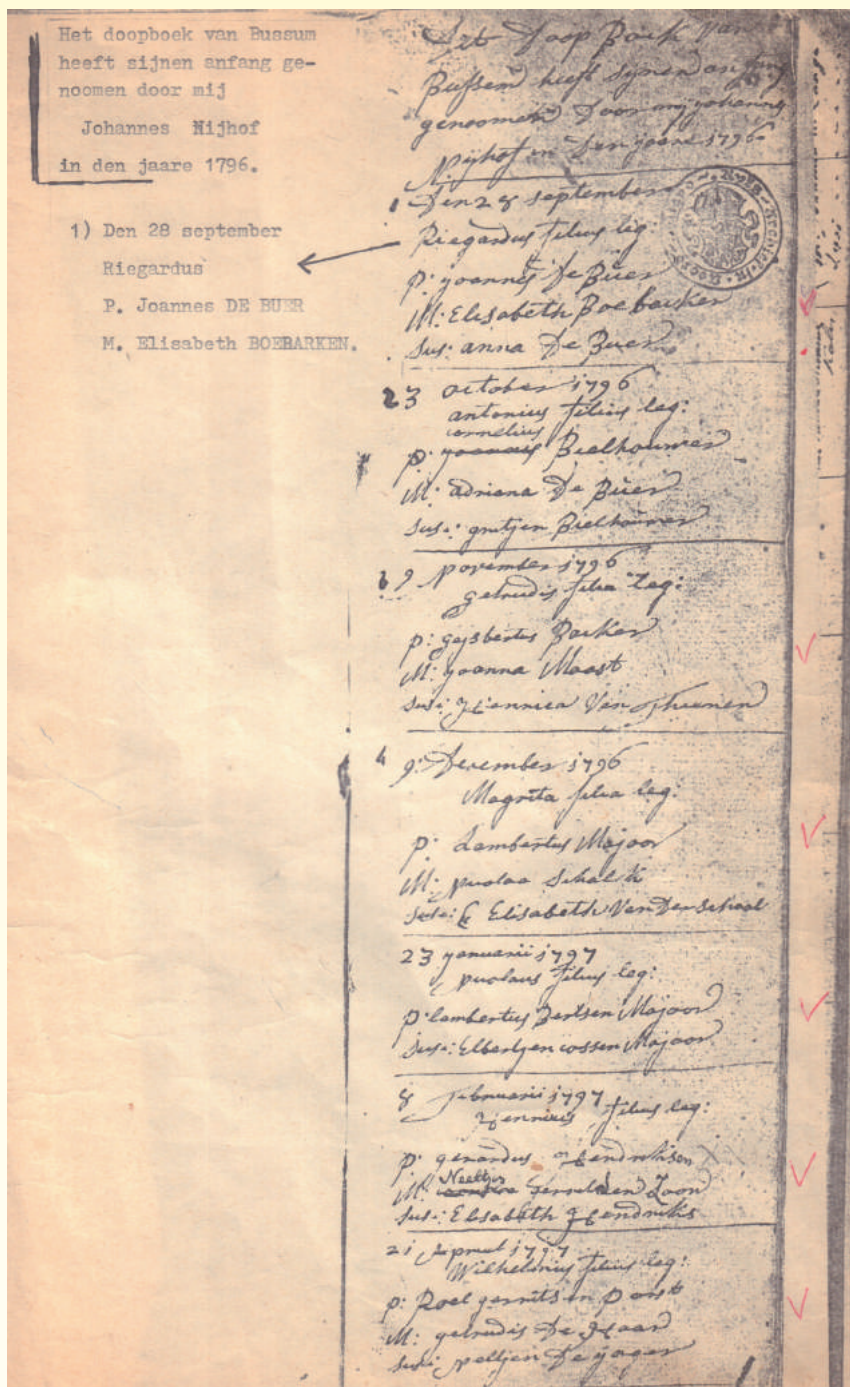 Het doopboek van Bussum
heeft sijnen anfang ge-
noomen door mij
Johannes Nijhof
in den jaare 1796.
1) Den 28 september
Riegardus
P. Joannes DE BUER
M. Elisabeth BOEBARKEN.
Doop Boek van
Bussem heeft synen anfang
genoomen Door mij Johannes
Nijhof in den jaare 1796
1 Den 28 september
Riegardus filius leg:
p: joannes De Buer
M: Elisabeth Boebarken
sus: anna De Buer
2 3 october 1796
antonius filius leg:
cornelius
p: Bielhouwer
M: adriena De Buer
sus: gritjen Bielhouwer
3 9 november 1796
gelrudis filia leg:
p: gijsbertus Backer
M: joanna Maast
sus: Hennica Van Thienen
4 9: December 1796
Magrita filia leg:
p: Lambertus Majoor
M: Schalk
sus: Elisabeth Van Der Schaal
23 januarii 1797
filius leg:
p: lambertus Bertsen Majoor
sus: Elbertjen cossen Majoor
8 februarii 1797
Henricus filius leg:
p: gerardus Hendriksen
Neeltje
M: Zoon
sus: Elsabeth Hendriks
21 april 1797
Wilhelmus filius leg:
p: Roel gerritsen
M: gelrudis De Haar
sus: neltjen De jager